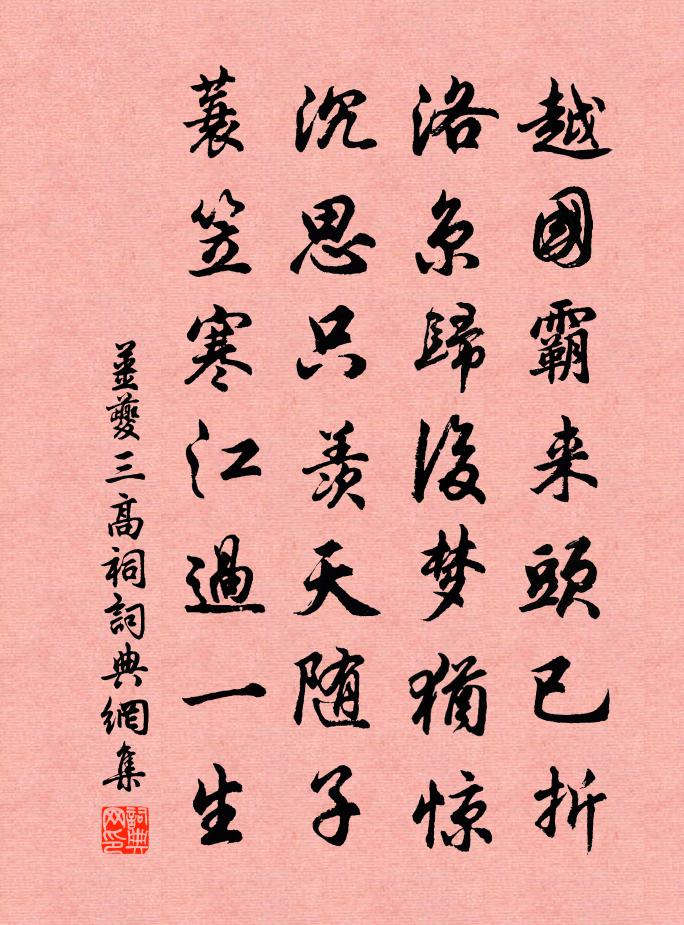 越國霸来頭已折
洛京歸後梦猶惊
沉思只羡天随子
蓑笠寒江過一生
薑夔三高祠詞典網集
詞典网印